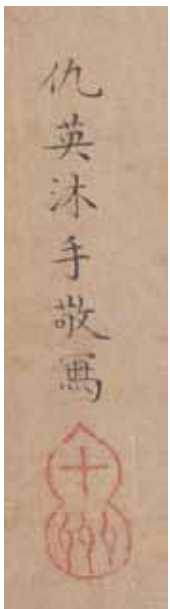 仇英沐手敬寫
十州